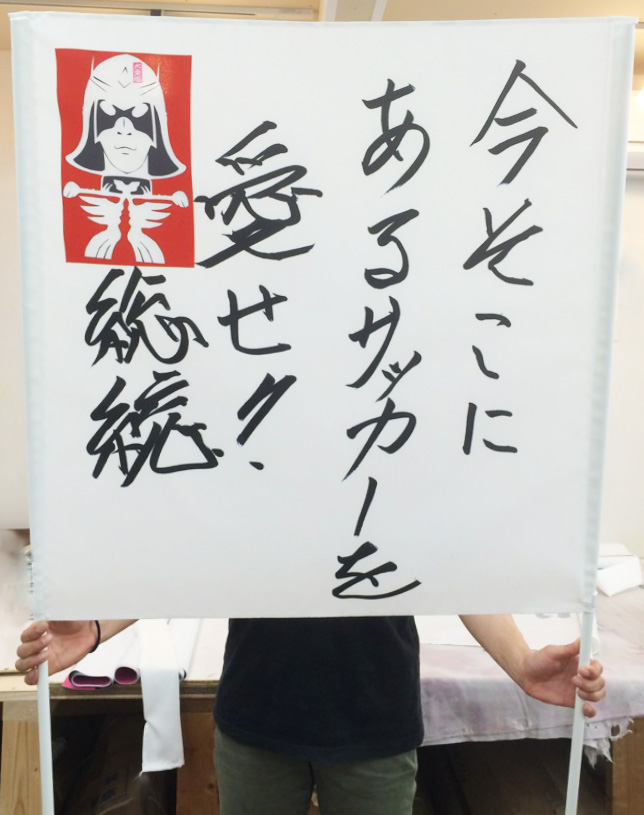 今そこに
あるサッカーを
愛せ!!
総統